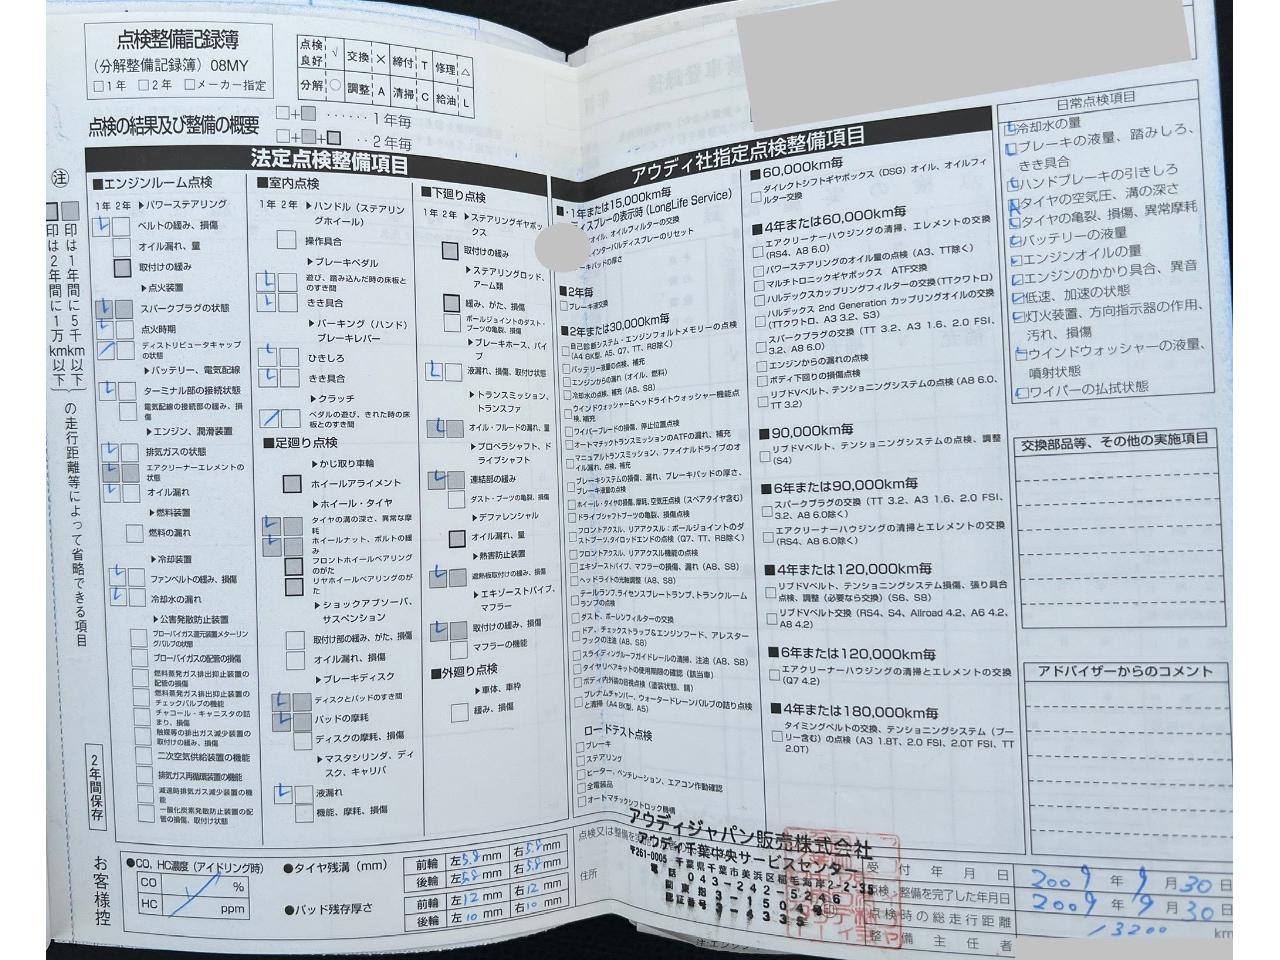 点検整備記録簿
(分解整備記録簿) 08MY
□1年 □2年 □メーカー指定
点検良好 √ 交換 × 締付 T 修理 △
分解 ○ 調整 A 清掃 C 給油 L
点検の結果及び整備の概要
□+□ ‥‥‥1年毎
□+□+□ ‥2年毎
注
□印は1年間に5千km以下
□印は2年間に1万km以下
の走行距離等によって省略できる項目
2年間保存
お客様控
法定点検整備項目
■エンジンルーム点検
1年 2年 ▶パワーステアリング
ベルトの緩み、損傷
オイル漏れ、量
取付けの緩み
▶点火装置
スパークプラグの状態
点火時期
ディストリビュータキャップの状態
▶バッテリー、電気配線
ターミナル部の接続状態
電気配線の接続部の緩み、損傷
▶エンジン、潤滑装置
排気ガスの状態
エアクリーナーエレメントの状態
オイル漏れ
▶燃料装置
燃料の漏れ
▶冷却装置
ファンベルトの緩み、損傷
冷却水の漏れ
▶公害発散防止装置
ブローバイガス還元装置メターリングバルブの状態
ブローバイガスの配管の損傷
燃料蒸発ガス排出抑止装置の配管の損傷
燃料蒸発ガス排出抑止装置のチェックバルブの機能
チャコール・キャニスタの詰まり、損傷
触媒等の排出ガス減少装置の取付けの緩み、損傷
二次空気供給装置の機能
排気ガス再循環装置の機能
減速時排気ガス減少装置の機能
一酸化炭素発散防止装置の配管の損傷、取付け状態
■室内点検
1年 2年 ▶ハンドル(ステアリングホイール)
操作具合
▶ブレーキペダル
遊び、踏み込んだ時の床板とのすき間
きき具合
▶パーキング(ハンド)ブレーキレバー
ひきしろ
きき具合
▶クラッチ
ペダルの遊び、きれた時の床板とのすき間
■足廻り点検
▶かじ取り車輪
ホイールアライメント
▶ホイール・タイヤ
タイヤの溝の深さ、異常な摩耗
ホイールナット、ボルトの緩み
フロントホイールベアリングのがた
リヤホイールベアリングのがた
▶ショックアブソーバ、サスペンション
取付け部の緩み、がた、損傷
オイル漏れ、損傷
▶ブレーキディスク
ディスクとパッドのすき間
パッドの摩耗
ディスクの摩耗、損傷
▶マスタシリンダ、ディスク、キャリパ
液漏れ
機能、摩耗、損傷
■下廻り点検
1年 2年 ▶ステアリングギヤボックス
取付けの緩み
▶ステアリングロッド、アーム類
緩み、がた、損傷
ボールジョイントのダスト・ブーツの亀裂、損傷
▶ブレーキホース、パイプ
液漏れ、損傷、取付け状態
▶トランスミッション、トランスファ
オイル・フルードの漏れ、量
▶プロペラシャフト、ドライブシャフト
連結部の緩み
ダスト・ブーツの亀裂、損傷
▶デファレンシャル
オイル漏れ、量
▶熱害防止装置
遮熱板取付けの緩み、損傷
▶エキゾーストパイプ、マフラー
取付けの緩み、損傷
マフラーの機能
■外廻り点検
▶車体、車枠
緩み、損傷
●CO、HC濃度(アイドリング時)
CO %
HC ppm
●タイヤ残溝(mm)
前輪 左5.8mm 右5.8mm
後輪 左5.8mm 右5.8mm
●パッド残存厚さ
前輪 左12mm 右12mm
後輪 左10mm 右10mm
アウディ社指定点検整備項目
■・1年または15,000km毎
ディスプレーの表示時(LongLife Service)
オイル、オイルフィルターの交換
インターバルディスプレーのリセット
ブレーキパッドの厚さ
■2年毎
□ブレーキ液交換
■2年または30,000km毎
□自己診断システム・エンジンフォルトメモリーの点検(A4 8K型、A5、Q7、TT、R8除く)
□バッテリー液量の点検、補充
□エンジンからの漏れ(オイル、燃料)
□冷却水の点検、補充(A8、S8)
□ウインドウォッシャー&ヘッドライトウォッシャー機能点検、補充
□ワイパーブレードの損傷、停止位置点検
□オートマチックトランスミッションのATFの漏れ、補充
□マニュアルトランスミッション、ファイナルドライブのオイル漏れ、点検、補充
□ブレーキシステムの損傷、漏れ、ブレーキパッドの厚さ、ブレーキ液量の点検
□ホイール・タイヤの損傷、摩耗、空気圧点検(スペアタイヤ含む)
□ドライブシャフトブーツの亀裂、損傷点検
□フロントアクスル、リアアクスル:ボールジョイントのダストブーツ、タイロッドエンドの点検(Q7、TT、R8除く)
□フロントアクスル、リアアクスル機能の点検
□エキゾーストパイプ、マフラーの損傷、漏れ(A8、S8)
□ヘッドライトの光軸調整(A8、S8)
□テールランプ、ライセンスプレートランプ、トランクルームランプの点検
□ダスト、ポーレンフィルターの交換
□ドア、チェックストラップ&エンジンフード、アレスターフックの注油(A8、S8)
□スライディングルーフガイドレールの清掃、注油(A8、S8)
□タイヤリペアキットの使用期限の確認(該当車)
□ボディ内外装の目視点検(塗装状態、錆)
□プレナムチャンバー、ウォータードレーンバルブの詰り点検と清掃(A4 8K型、A5)
ロードテスト点検
□ブレーキ
□ステアリング
□ヒーター、ベンチレーション、エアコン作動確認
□全電装品
□オートマチックシフトロック機構
■60,000km毎
□ダイレクトシフトギヤボックス(DSG)オイル、オイルフィルター交換
■4年または60,000km毎
□エアクリーナーハウジングの清掃、エレメントの交換(RS4、A8 6.0)
□パワーステアリングのオイル量の点検(A3、TT除く)
□マルチトロニックギヤボックス ATF交換
□ハルデックスカップリングフィルターの交換(TTクワトロ)
□ハルデックス 2nd Generation カップリングオイルの交換(TTクワトロ、A3 3.2、S3)
□スパークプラグの交換(TT 3.2、A3 1.6、2.0 FSI、3.2、A8 6.0)
□エンジンからの漏れの点検
□ボディ下回りの損傷点検
□リブドVベルト、テンショニングシステムの点検(A8 6.0、TT 3.2)
■90,000km毎
□リブドVベルト、テンショニングシステムの点検、調整(S4)
■6年または90,000km毎
□スパークプラグの交換(TT 3.2、A3 1.6、2.0 FSI、3.2、A8 6.0除く)
□エアクリーナーハウジングの清掃とエレメントの交換(RS4、A8 6.0除く)
■4年または120,000km毎
□リブドVベルト、テンショニングシステム損傷、張り具合点検、調整(必要なら交換)(S6、S8)
□リブドVベルト交換(RS4、S4、Allroad 4.2、A6 4.2、A8 4.2)
■6年または120,000km毎
□エアクリーナーハウジングの清掃とエレメントの交換(Q7 4.2)
■4年または180,000km毎
□タイミングベルトの交換、テンショニングシステム(プーリー含む)の点検(A3 1.8T、2.0 FSI、2.0T FSI、TT 2.0T)
日常点検項目
冷却水の量
ブレーキの液量、踏みしろ、きき具合
ハンドブレーキの引きしろ
タイヤの空気圧、溝の深さ
タイヤの亀裂、損傷、異常摩耗
バッテリーの液量
エンジンオイルの量
エンジンのかかり具合、異音
低速、加速の状態
灯火装置、方向指示器の作用、汚れ、損傷
ウインドウォッシャーの液量、噴射状態
ワイパーの払拭状態
交換部品等、その他の実施項目
アドバイザーからのコメント
点検又は整備を
住所
アウディジャパン販売株式会社
アウディ千葉中央サービスセンター
〒261-0005 千葉県千葉市美浜区稲毛海岸2-2-35
電話 043-242-5246
関東指 3-1504号
認証番号 3-4335
受付年月日 2009年9月30日
点検・整備を完了した年月日 2009年9月30日
点検時の総走行距離 13200 km
整備主任者
注:エンジン